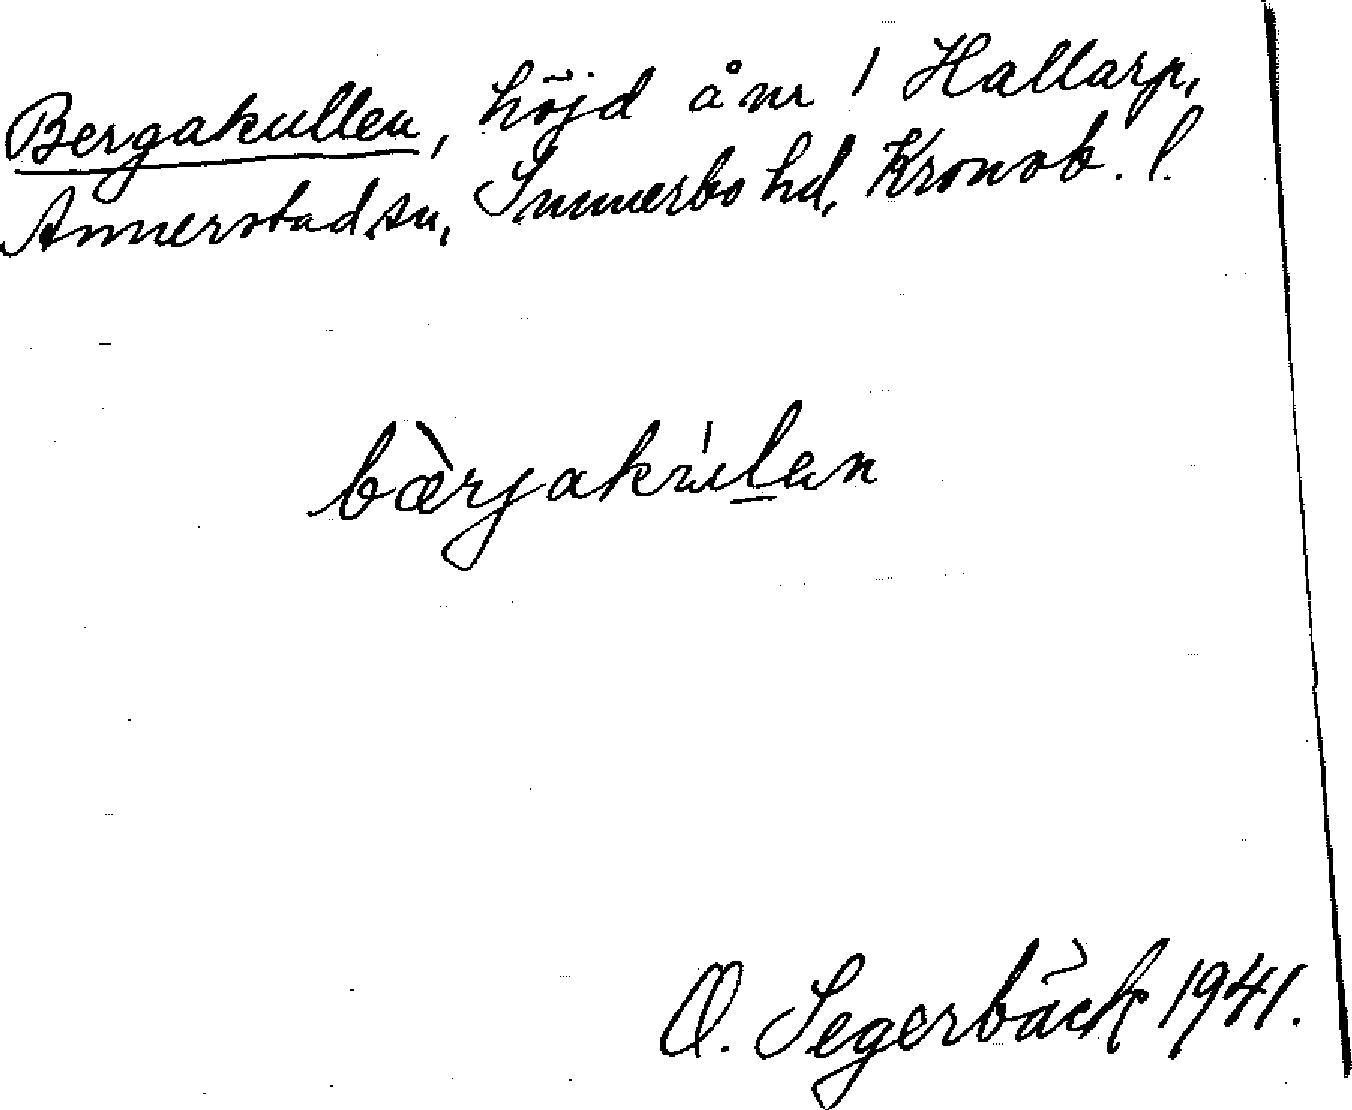 Bergakullen, höjd å nr 1 Hallarp,
Annerstad sn, Sunnerbo hd, Kronob. l.
bæ̀rjakúl̲an
O. Segerbäck 1941.